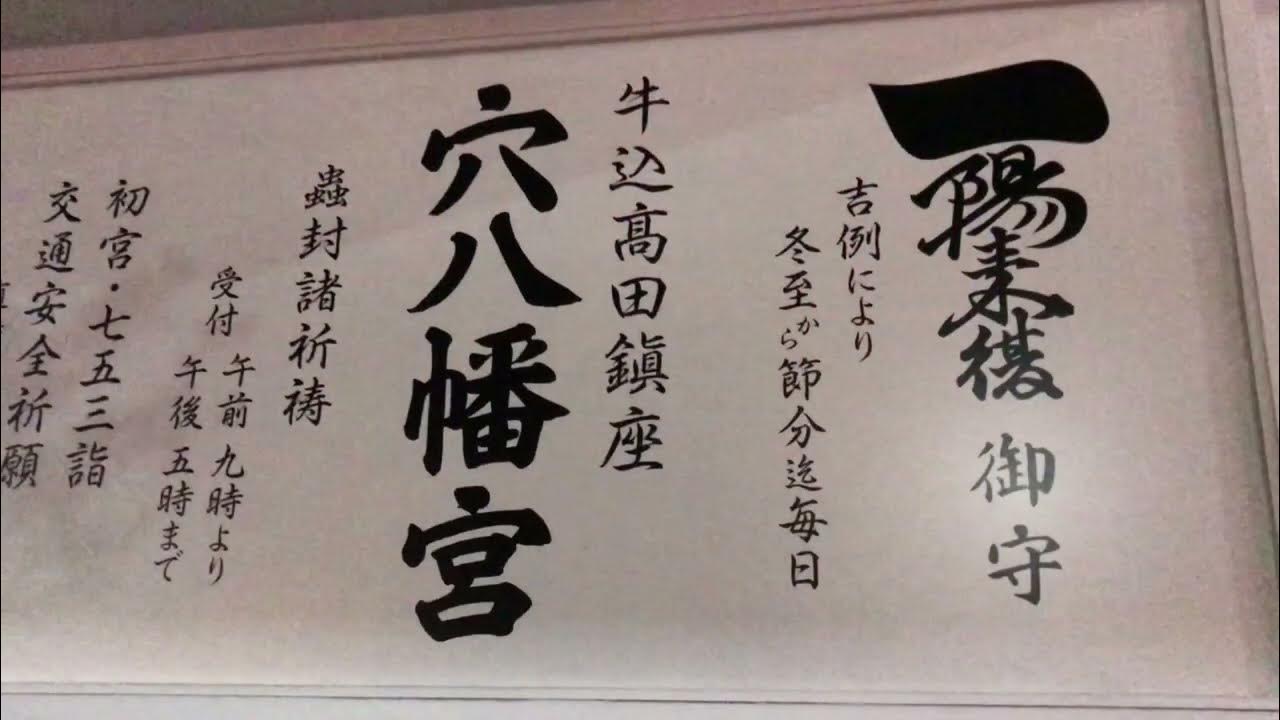 一陽来復 御守
吉例により
冬至から節分迄毎日
牛込高田鎮座
穴八幡宮
蟲封諸祈祷
受付
午前九時より
午後五時まで
初宮・七五三詣
交通安全祈願